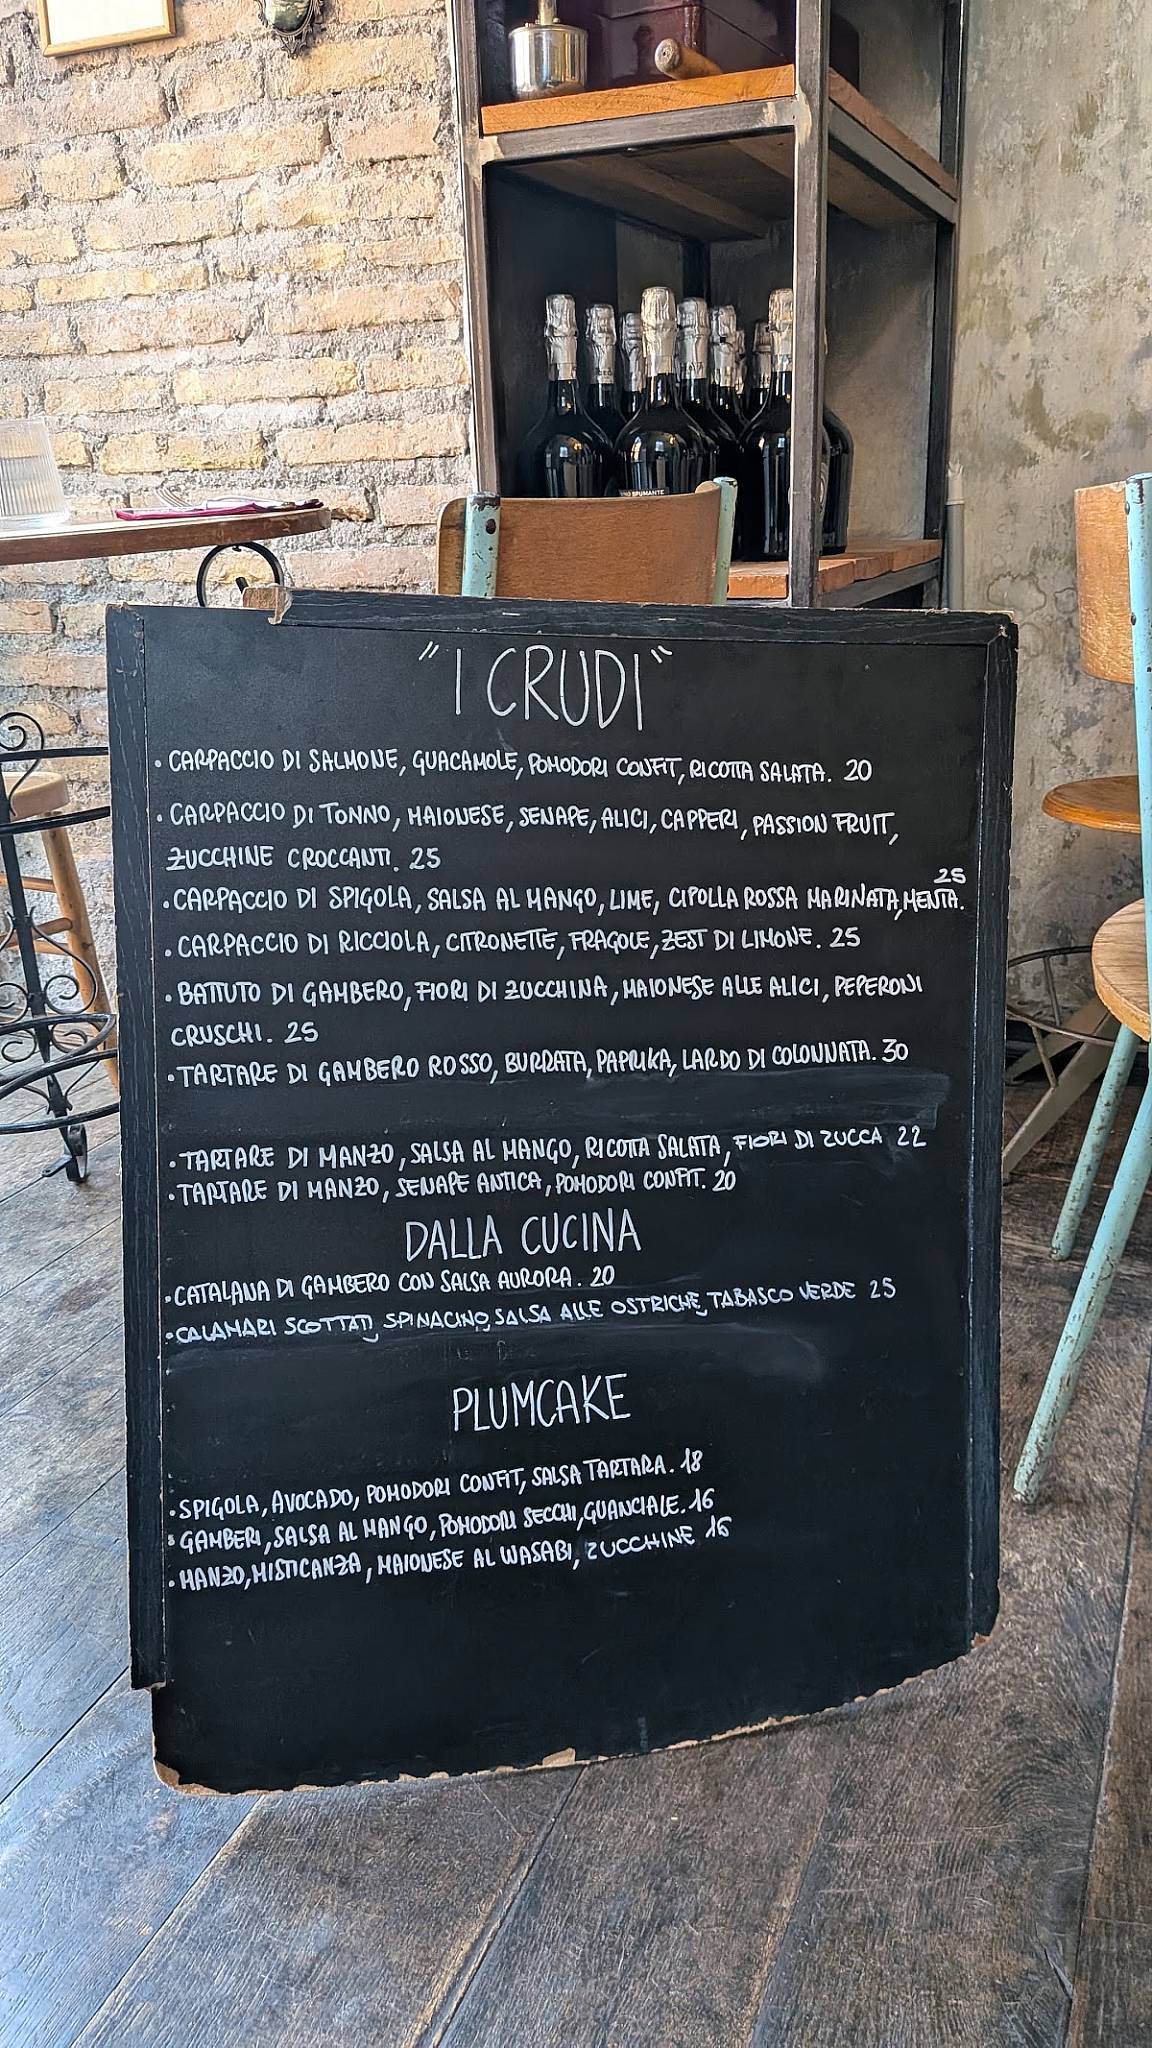 NO SPUMANTE
"I CRUDI"
• CARPACCIO DI SALMONE, GUACAMOLE, POMODORI CONFIT, RICOTTA SALATA. 20
• CARPACCIO DI TONNO, MAIONESE, SENAPE, ALICI, CAPPERI, PASSION FRUIT,
ZUCCHINE CROCCANTI. 25
• CARPACCIO DI SPIGOLA, SALSA AL MANGO, LIME, CIPOLLA ROSSA MARINATA, MENTA. 25
• CARPACCIO DI RICCIOLA, CITRONETTE, FRAGOLE, ZEST DI LIMONE. 25
• BATTUTO DI GAMBERO, FIORI DI ZUCCHINA, MAIONESE ALLE ALICI, PEPERONI
CRUSCHI. 25
• TARTARE DI GAMBERO ROSSO, BURRATA, PAPRIKA, LARDO DI COLONNATA. 30
• TARTARE DI MANZO, SALSA AL MANGO, RICOTTA SALATA, FIORI DI ZUCCA 22
• TARTARE DI MANZO, SENAPE ANTICA, POMODORI CONFIT. 20
DALLA CUCINA
• CATALANA DI GAMBERO CON SALSA AURORA. 20
• CALAMARI SCOTTATI, SPINACINO, SALSA ALLE OSTRICHE, TABASCO VERDE 25
PLUMCAKE
• SPIGOLA, AVOCADO, POMODORI CONFIT, SALSA TARTARA. 18
• GAMBERI, SALSA AL MANGO, POMODORI SECCHI, GUANCIALE. 16
• MANZO, MISTICANZA, MAIONESE AL WASABI, ZUCCHINE 16